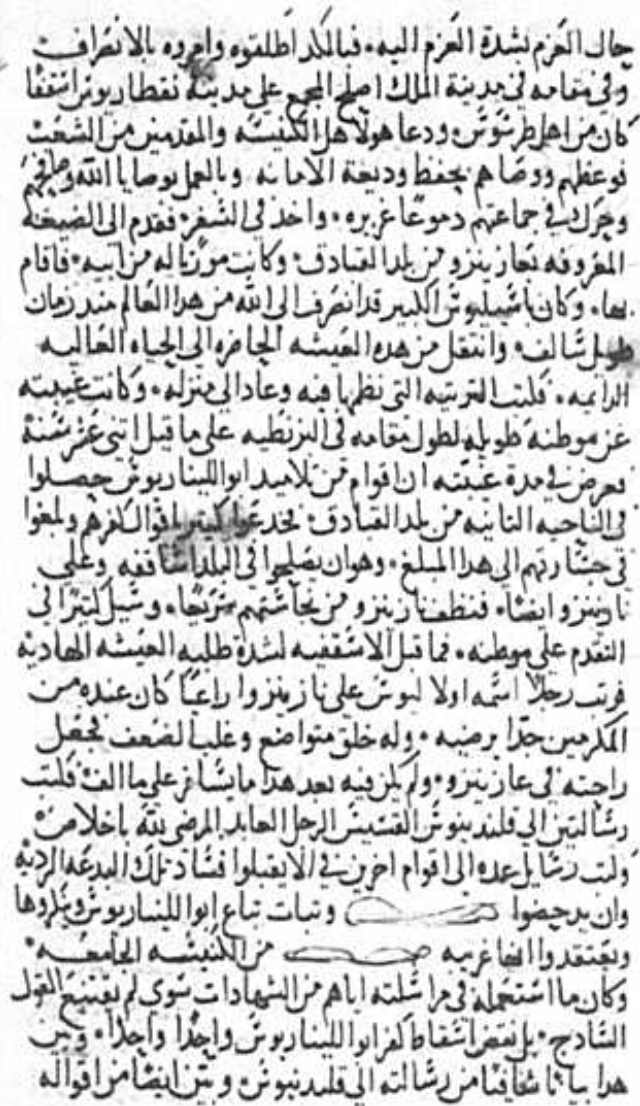 حال العزم لشدة العزم اليه، فبالكد اطلقوه وامروه بالانصراف
وفي مقامه في مدينة الملك اصلح المجمع على مدينة نقطاريوس اسقفا
كان من اهل طرسوس، ودعا هولا اهل الكنيسه والمقدمين من الشعب
فوعظهم ووصاهم بحفظ وديعة الامانه وبالعمل بوصايا الله وصافحهم
وحرك في جماعتهم دموعًا غزيره، واخذ في السفر، فقدم الى الضيعه
المعروفه نعازينزو من بلد القبادق، وكانت موزناله من ابيه، فاقام
بها، وكان باسيليوس الكبير قد انصرف الى الله من هذا العالم منذ زمان
طويل سالف، وانتقل من هذه العيشه الحاضره الى الحياه العاليه
الدايمه، فكتب المرتيه التي نظمها فيه وعاد الى منزله، وكانت غيبته
عن موطنه طويله لطول مقامه في البزنطيه على ما قيل اتني عشر سنة
فعرض في مدة غيبته ان اقوام من تلاميد ابوالليناريوس حصلوا
في الناحيه التانيه من بلد القبادق، فخدعوا كتير باقوال كفرهم وبلغوا
في جسارتهم الى هذا المبلغ، وهو ان يصلحوا في البلد اساقفه وعلى
نازينزو ايضا، فنظف نازينزو من نجاستهم سريعًا، وسيل كتيرًا في
التقدم على موطنه، فما قبل الاسقفيه لشدة طلبه العيشه الهاديه
فرتب رجلاً اسمه اولاليوس على نازينزو راعيًا كان عنده من
المكرمين جدًا برضيه، وله خلق متواضع وغلب الضعف فجعل
راحته في عازينزو، ولم يكن فيه بعد هذا ما يسافر على ما الف، فكتب
رسالتين الى قليدينوس القسيس الرجل العابد المرضي لله باخلاص
وكتب رسايل عده الى اقوام اخرين في الا يقبلوا فساد تلك البدعه الرديه
وان يدحضوا وتبات تباع ابوالليناريوس وينكروها
ويعتقدوا انها غريبه من الكنيسه الجامعه،
وكان ما استعمله في مراسلته اياهم من الشهادات سوى لم يقنع القول
السادج، بل نقض اسقاط كفر ابوالليناريوس واحدًا واحدًا، وبين
هذا بيانا شافيا من رسالته الى قليدنيوس، وبين ايضًا من اقواله